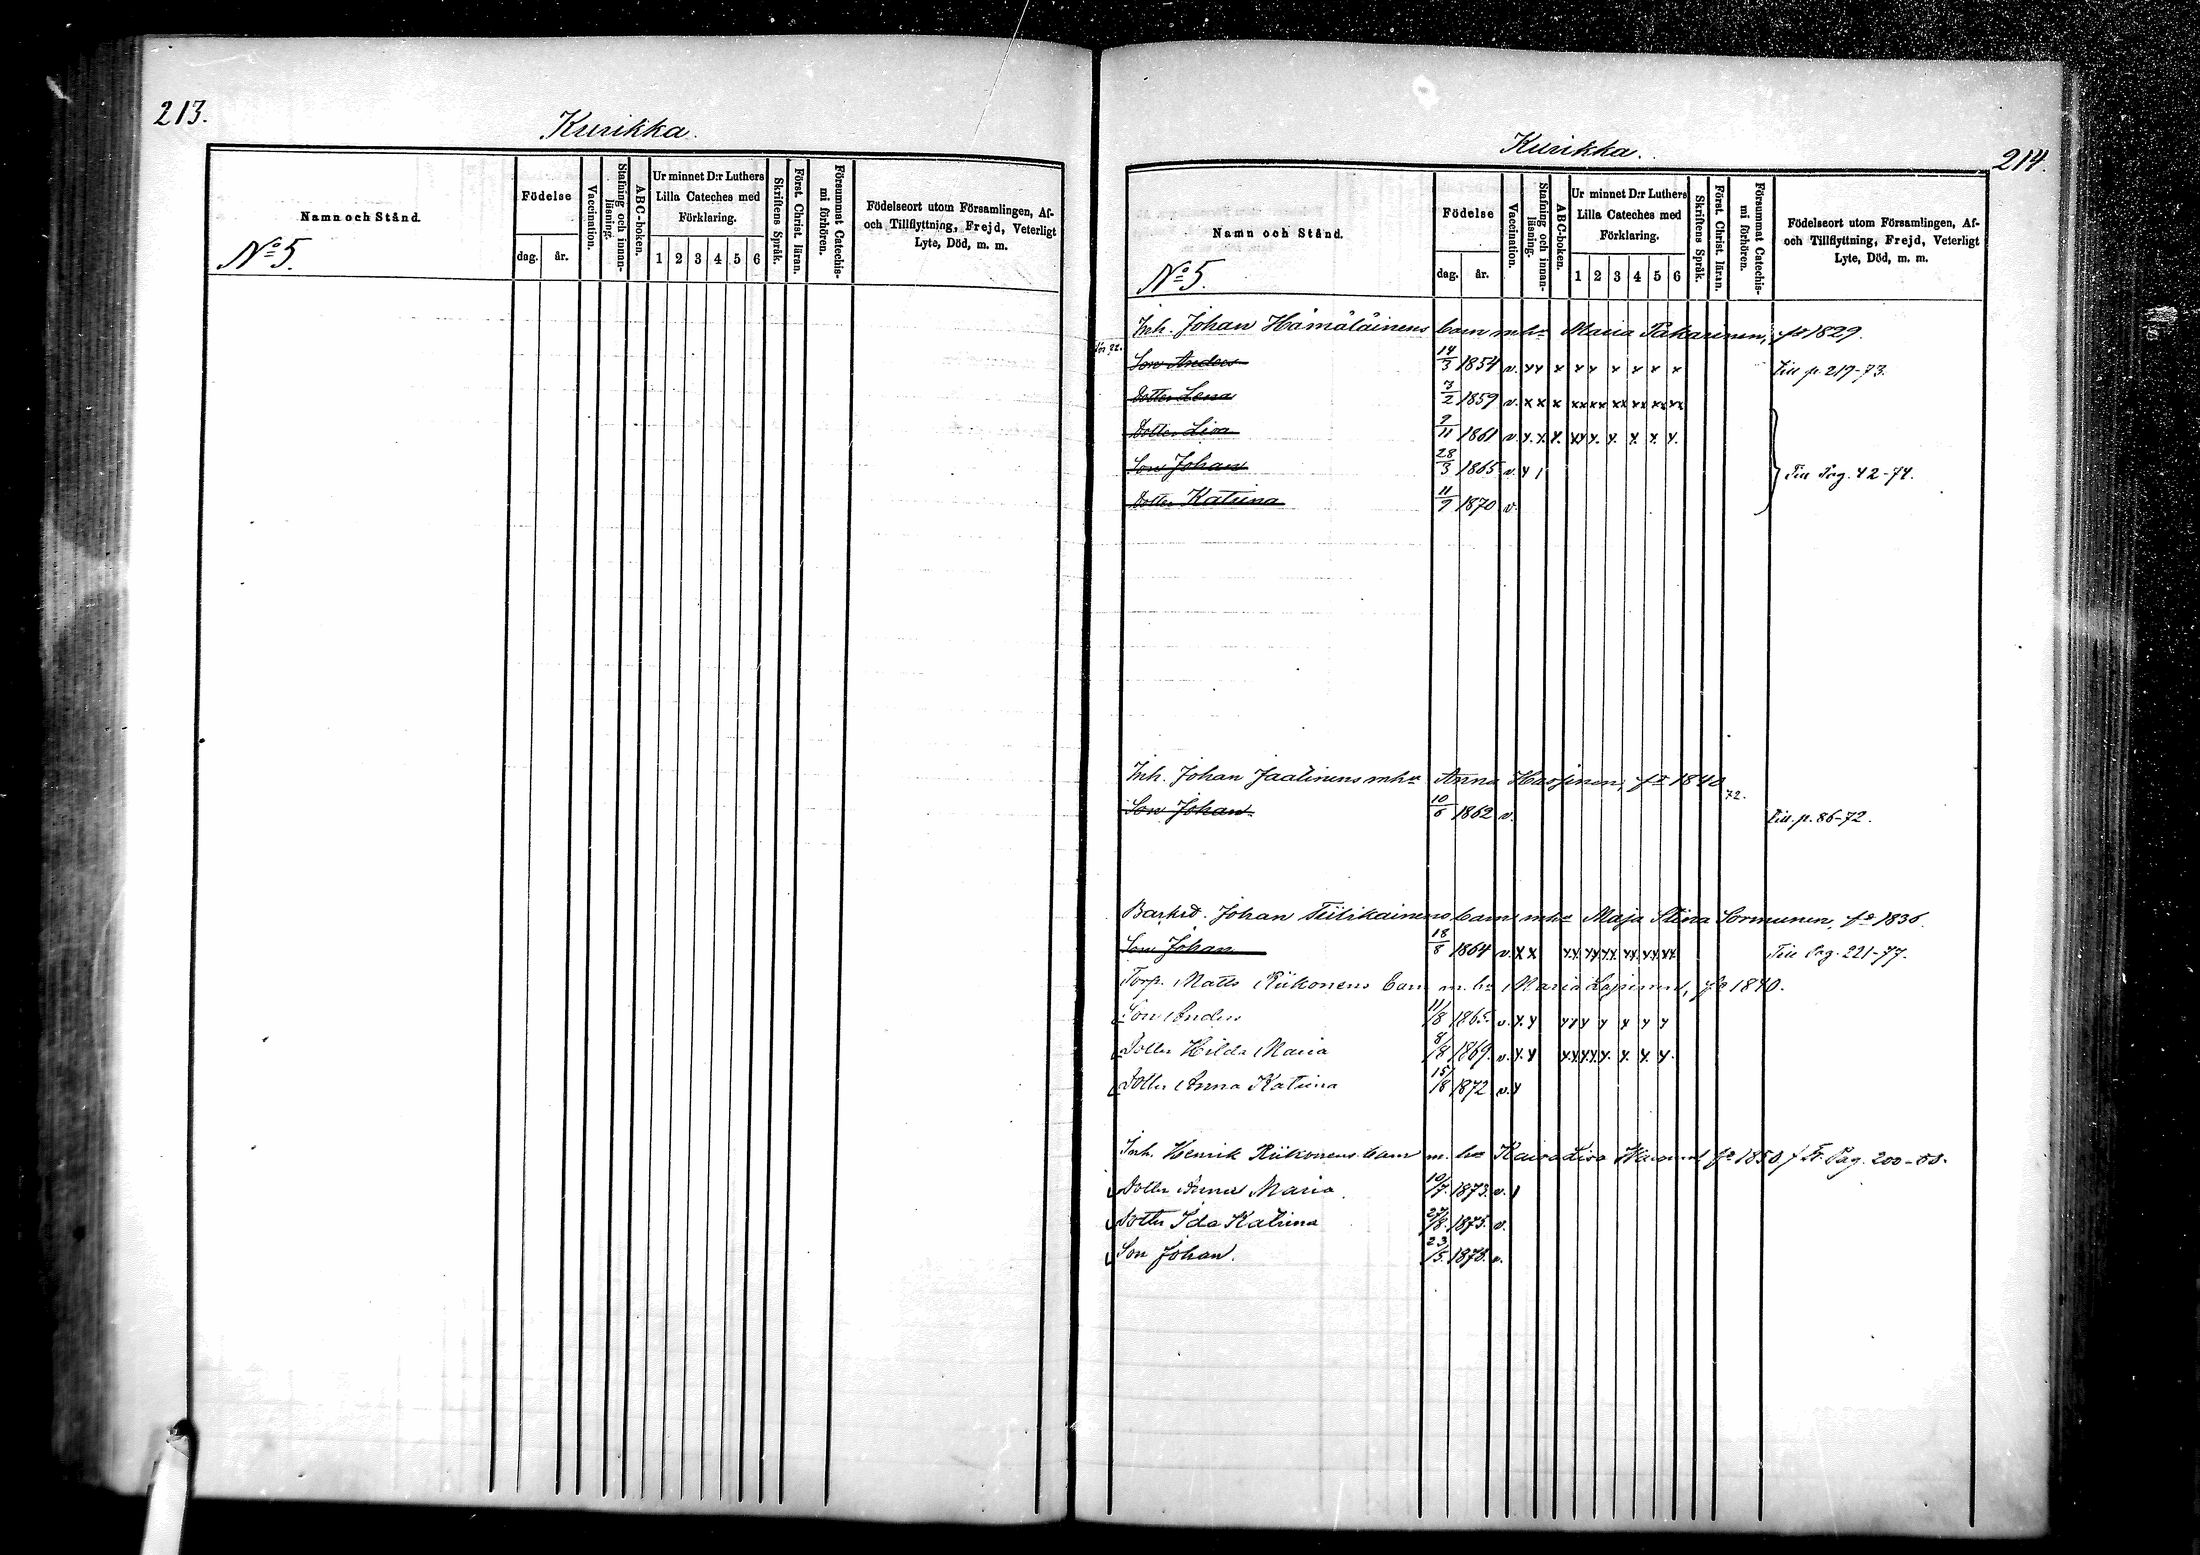 213.
Kurikka.
Namn och Stånd.
No 5.
Födelse
dag. år.
Vaccination.
Stafning och innan-läsning.
ABC-boken.
Ur minnet D:r Luthers
Lilla Cateches med
Förklaring.
1 2 3 4 5 6
Skriftens Språk.
Först. Christ. läran.
Försummat Catechis-mi förhören.
Födelseort utom Församlingen, Af-
och Tillflyttning, Frejd, Veterligt
Lyte, Död, m. m.
Kurikka.
214.
Namn och Stånd.
No 5.
Födelse
dag. år.
Vaccination.
Stafning och innan-läsning.
ABC-boken.
Ur minnet D:r Luthers
Lilla Cateches med
Förklaring.
1 2 3 4 5 6
Skriftens Språk.
Först. Christ. läran.
Försummat Catechis-mi förhören.
Födelseort utom Församlingen, Af-
och Tillflyttning, Frejd, Veterligt
Lyte, Död, m. m.
Inh. Johan Hämäläinens barn m hu Maria Pakarinen, fo 1829.
Son Anders 14/3 1854 v. x x x x x x x x x Till p. 217-73.
Dotter Lena 7/2 1859 v. x x x xx xx xx xx xx xx
Dotter Lisa 9/11 1861 v. x. x. x. xx x. x. x. x. x.
Son Johan 28/3 1865 v. x 1 Till Pag. 42-74.
Dotter Katrina 11/9 1870 v.
Inh. Johan Jaatinens m hu Anna Hassinen, fo 1840
72.
Son Johan 10/6 1862 v. Till p. 86-72.
Backst. Johan Tiilikainens barn m hu Maja Stina Sormunen, fo 1836.
Son Johan 18/8 1864 v. x x xx xx xx xx xx xx Till Pag. 221-77.
Torp. Matts Riikonens barn m. hu Maria Lapinen, fo 1840.
Son Anders 11/8 1865. v. x. x xx x x x x x
Dotter Hilda Maria 8/8 1869. v. x. x xx xx x. x. x. x.
Dotter Anna Katrina 15/8 1872 v. x
Inh. Henrik Riikonens barn m. hu Kaisa Lisa fo 1850 / Fr. Pag. 200-
Dotter Anna Maria 10/7. 1873. v. 1
Dotter Ida Katrina 27/8. 1875. v.
Son Johan. 23/5. 1878. v.